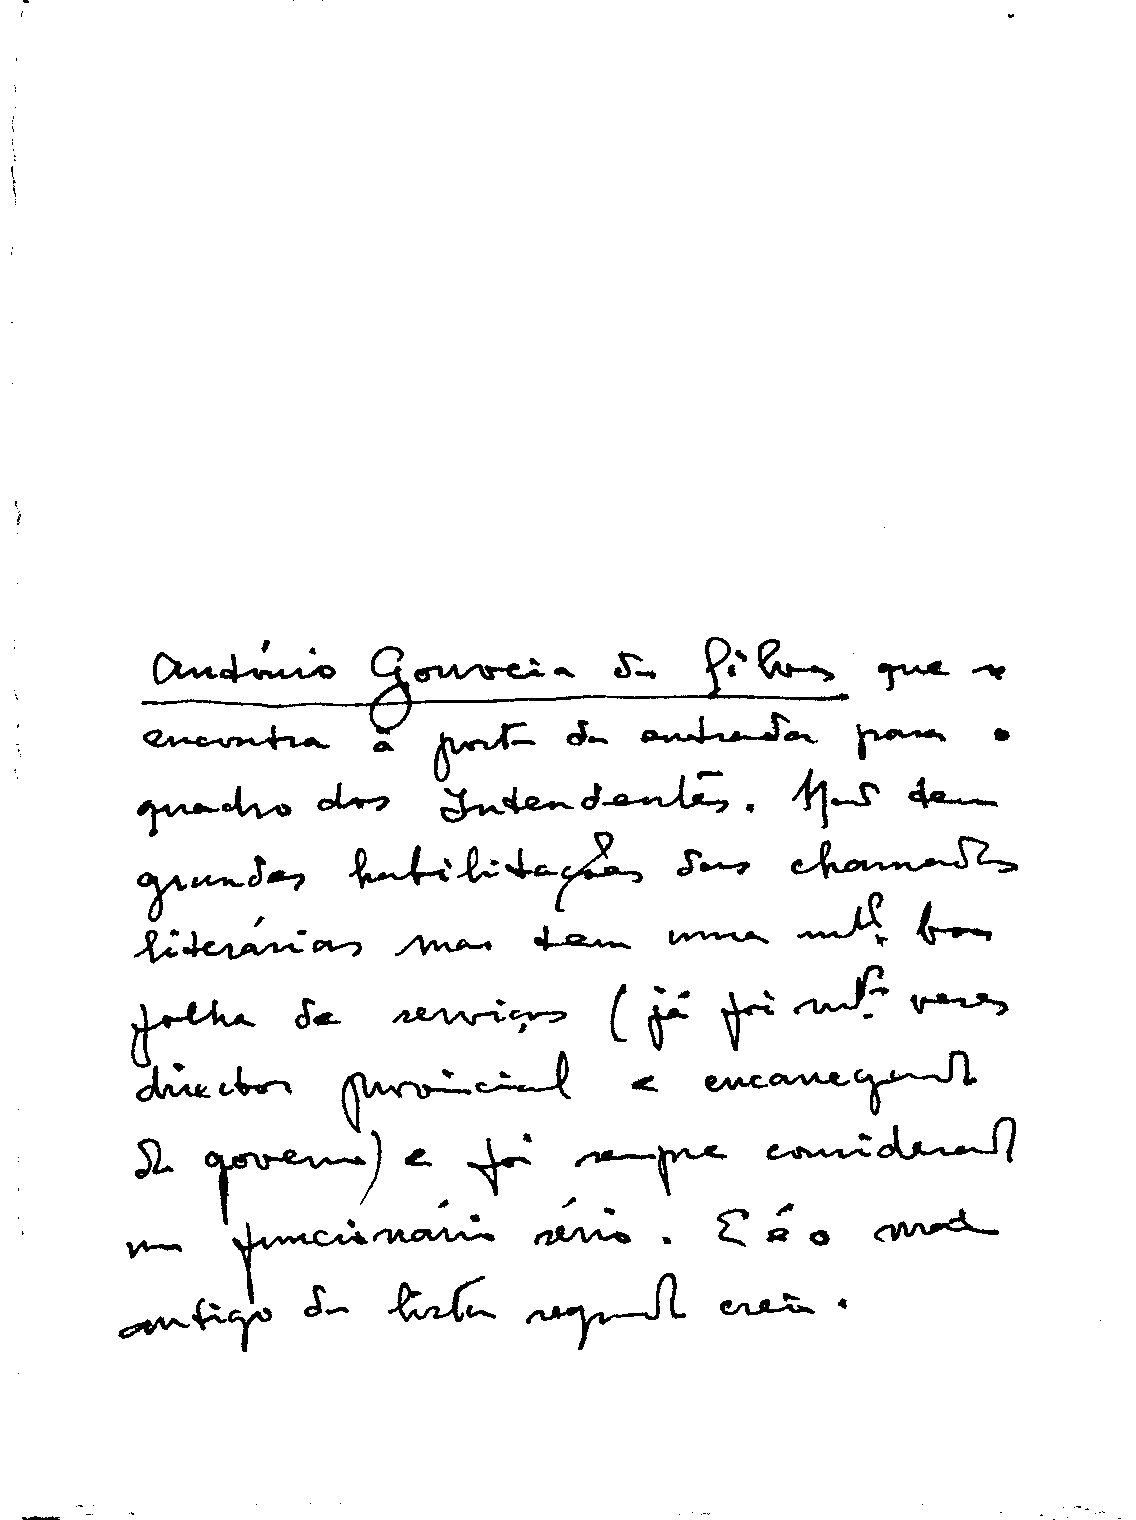 António Gouveia da Silva que se
encontra à porta da entrada para o
quadro dos Intendentes. Não tem
grandes habilitações das chamadas
literárias mas tem uma mtº. boa
folha de serviços (já foi mtªs. vezes
director provincial e encarregado
de governo) e foi sempre considerado
um funcionário sério. E é o mais
antigo da lista segundo creio.